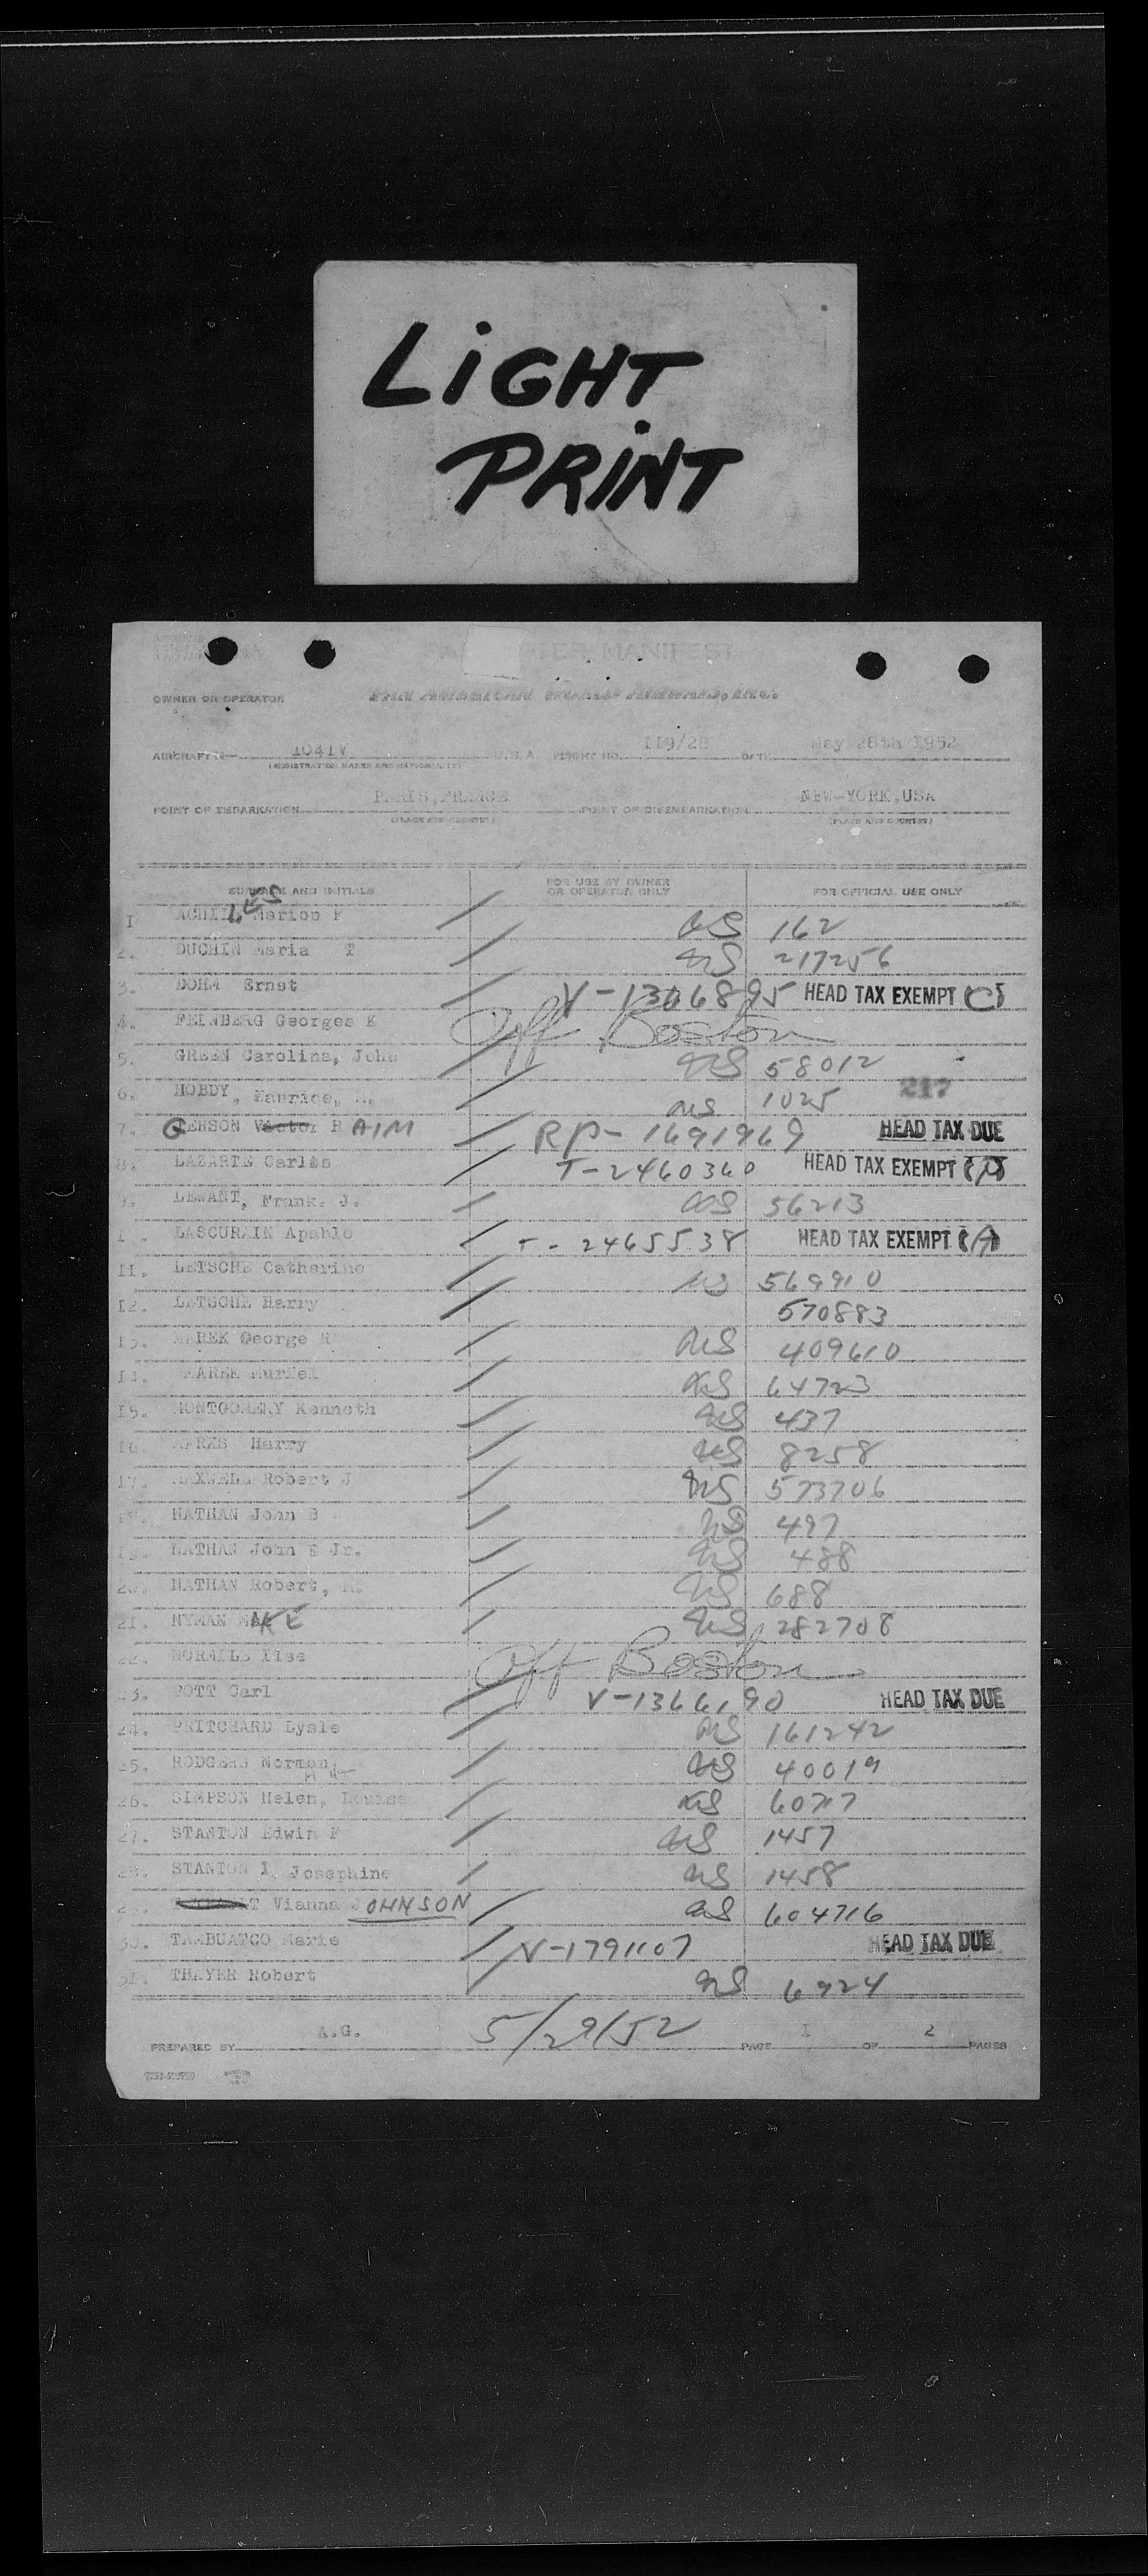 LIGHT
PRINT
PASSENGER MANIFEST
OWNER OR OPERATOR PAN AMERICAN WORLD AIRWAYS, INC.
AIRCRAFT N— 1041V U.S.A. FLIGHT NO. 119/28 DATE May 28th 1952
(REGISTRATION MARKS AND NATIONALITY)
POINT OF EMBARKATION PARIS,FRANCE POINT OF DISEMBARKATION NEW-YORK,USA
(PLACE AND COUNTRY) (PLACE AND COUNTRY)
SURNAME AND INITIALS FOR USE BY OWNER OR OPERATOR ONLY FOR OFFICIAL USE ONLY
I Marion F US 162
2. DUCHIN Maria T US 217256
3. DOHM Ernst V-1366895 HEAD TAX EXEMPT (C)
4. FEINBERG Georges E Off Boston
5. GREEN Carolina, John US 58012
6. HOBDY, Maurice, US 1025
7. GERSON Victor HAIM RP-1691969 HEAD TAX DUE
8. LAZARTE Carlos T-2460360 HEAD TAX EXEMPT
9. LEWANT, Frank. J. US 56213
LASCURAIN Apablo T-2465538 HEAD TAX EXEMPT (A)
11. LETSCHE Catherine US 569910
12. LETSCHE Harry 570883
13. MAREK George R US 409610
14. MAREK Muriel US 64723
15. MONTGOMERY Kenneth US 437
16. Harry US 8258
17. MAXWELL Robert J US 573706
18. NATHAN John B US 497
19. NATHAN John E Jr. US 488
20. NATHAN Robert, US 688
21. NYMAN US 282708
22. Ilse Off Boston
23. POTT Carl V-1366190 HEAD TAX DUE
24. PRITCHARD Lysle US 161242
25. RODGERS Norman US 40019
26. SIMPSON Helen, Louise US 60717
27. STANTON Edwin F US 1457
28. STANTON I, Josephine US 1458
29. Vianna JOHNSON US 604716
30. TAMBUATCO Marie V-1791107 HEAD TAX DUE
31. THAYER Robert US 6924
PREPARED BY A.G. 5/29/52 PAGE I OF 2 PAGES